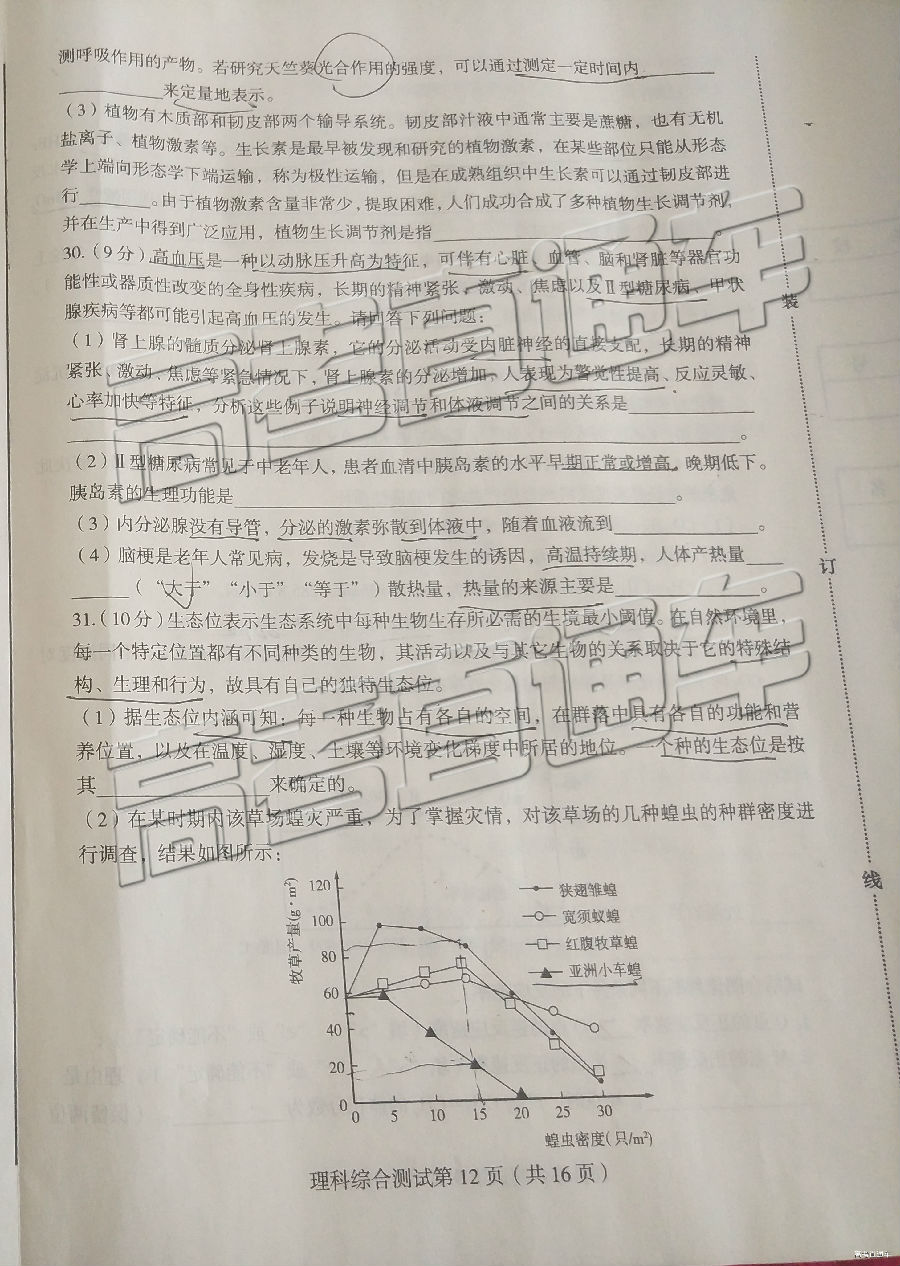 测呼吸作用的产物。若研究天竺葵光合作用的强度，可以通过测定一定时间内
来定量地表示。
（3）植物有木质部和韧皮部两个输导系统。韧皮部汁液中通常主要是蔗糖，也有无机
盐离子、植物激素等。生长素是最早被发现和研究的植物激素，在某些部位只能从形态
学上端向形态学下端运输，称为极性运输，但是在成熟组织中生长素可以通过韧皮部进
行________。由于植物激素含量非常少，提取困难，人们成功合成了多种植物生长调节剂，
并在生产中得到广泛应用，植物生长调节剂是指________________。
30.（9分）高血压是一种以动脉压升高为特征，可伴有心脏、血管、脑和肾脏等器官功
能性或器质性改变的全身性疾病，长期的精神紧张、激动、焦虑以及Ⅱ型糖尿病、甲状
腺疾病等都可能引起高血压的发生。请回答下列问题：
（1）肾上腺的髓质分泌肾上腺素，它的分泌活动受内脏神经的直接支配，长期的精神
紧张、激动、焦虑等紧急情况下，肾上腺素的分泌增加，人表现为警觉性提高、反应灵敏、
心率加快等特征，分析这些例子说明神经调节和体液调节之间的关系是________
________________。
（2）Ⅱ型糖尿病常见于中老年人，患者血清中胰岛素的水平早期正常或增高，晚期低下。
胰岛素的生理功能是________________。
（3）内分泌腺没有导管，分泌的激素弥散到体液中，随着血液流到________。
（4）脑梗是老年人常见病，发烧是导致脑梗发生的诱因，高温持续期，人体产热量____
____（“大于”“小于”“等于”）散热量，热量的来源主要是________。
31.（10分）生态位表示生态系统中每种生物生存所必需的生境最小阈值。在自然环境里，
每一个特定位置都有不同种类的生物，其活动以及与其它生物的关系取决于它的特殊结
构、生理和行为，故具有自己的独特生态位。
（1）据生态位内涵可知：每一种生物占有各自的空间，在群落中具有各自的功能和营
养位置，以及在温度、湿度、土壤等环境变化梯度中所居的地位。一个种的生态位是按
其________________来确定的。
（2）在某时期内该草场蝗灾严重，为了掌握灾情，对该草场的几种蝗虫的种群密度进
行调查，结果如图所示：
牧草产量(g·m²)
120
100
80
60
40
20
0
0 5 10 15 20 25 30
蝗虫密度(只/m²)
狭翅雏蝗
宽须蚁蝗
红腹牧草蝗
亚洲小车蝗
理科综合测试第12页（共16页）
装
订
线
高考直通车
高考直通车